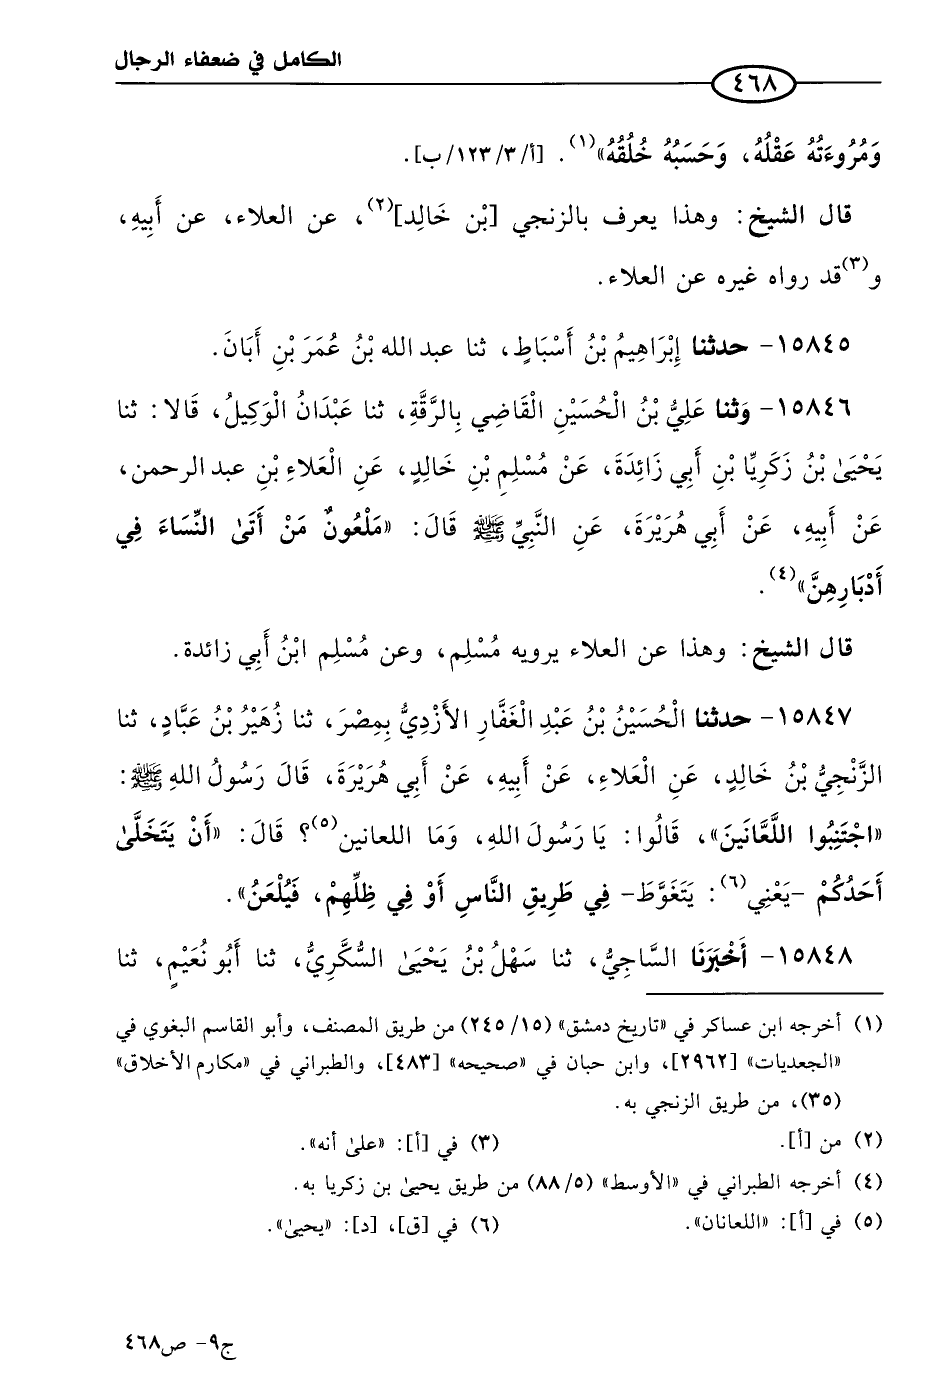 الكامل في ضعفاء الرجال
٤٦٨
وَمُرُوءَتُهُ عَقْلُهُ، وَحَسَبُهُ خُلُقُهُ»(١). [أ/٣/١٢٣/ب].
قال الشيخ: وهذا يعرف بالزنجي [بْن خَالِد](٢)، عن العلاء، عن أَبِيهِ،
و(٣)قد رواه غيره عن العلاء.
١٥٨٤٥- حدثنا إِبْرَاهِيمُ بْنُ أَسْبَاطٍ، ثنا عبد الله بْنُ عُمَرَ بْنِ أَبَانَ.
١٥٨٤٦- وَثنا عَلِيُّ بْنُ الْحُسَيْنِ الْقَاضِي بِالرَّقَّةِ، ثنا عَبْدَانُ الْوَكِيلُ، قَالا: ثنا
يَحْيَىٰ بْنُ زَكَرِيَّا بْنِ أَبِي زَائِدَةَ، عَنْ مُسْلِمِ بْنِ خَالِدٍ، عَنِ الْعَلاءِ بْنِ عبد الرحمن،
عَنْ أَبِيهِ، عَنْ أَبِي هُرَيْرَةَ، عَنِ النَّبِيِّ ﷺ قَالَ: «مَلْعُونٌ مَنْ أَتَىٰ النِّسَاءَ فِي
أَدْبَارِهِنَّ»(٤).
قال الشيخ: وهذا عن العلاء يرويه مُسْلِم، وعن مُسْلِم ابْنُ أَبِي زائدة.
١٥٨٤٧- حدثنا الْحُسَيْنُ بْنُ عَبْدِ الْغَفَّارِ الأَزْدِيُّ بِمِصْرَ، ثنا زُهَيْرُ بْنُ عَبَّادٍ، ثنا
الزَّنْجِيُّ بْنُ خَالِدٍ، عَنِ الْعَلاءِ، عَنْ أَبِيهِ، عَنْ أَبِي هُرَيْرَةَ، قَالَ رَسُولُ اللهِ ﷺ:
«اجْتَنِبُوا اللَّعَّانَينَ»، قَالُوا: يَا رَسُولَ اللهِ، وَمَا اللعانين(٥)؟ قَالَ: «أَنْ يَتَخَلَّىٰ
أَحَدُكُمْ -يَعْنِي(٦): يَتَغَوَّطَ- فِي طَرِيقِ النَّاسِ أَوْ فِي ظِلِّهِمْ، فَيُلْعَنُ».
١٥٨٤٨- أَخْبَرَنَا السَّاجِيُّ، ثنا سَهْلُ بْنُ يَحْيَىٰ السُّكَّرِيُّ، ثنا أَبُو نُعَيْمٍ، ثنا
(١) أخرجه ابن عساكر في «تاريخ دمشق» (١٥/ ٢٤٥) من طريق المصنف، وأبو القاسم البغوي في
«الجعديات» [٢٩٦٢]، وابن حبان في «صحيحه» [٤٨٣]، والطبراني في «مكارم الأخلاق»
(٣٥)، من طريق الزنجي به.
(٢) من [أ]. (٣) في [أ]: «علىٰ أنه».
(٤) أخرجه الطبراني في «الأوسط» (٥/ ٨٨) من طريق يحيىٰ بن زكريا به.
(٥) في [أ]: «اللعانان». (٦) في [ق]، [د]: «يحيىٰ».
ج٩- ص٤٦٨